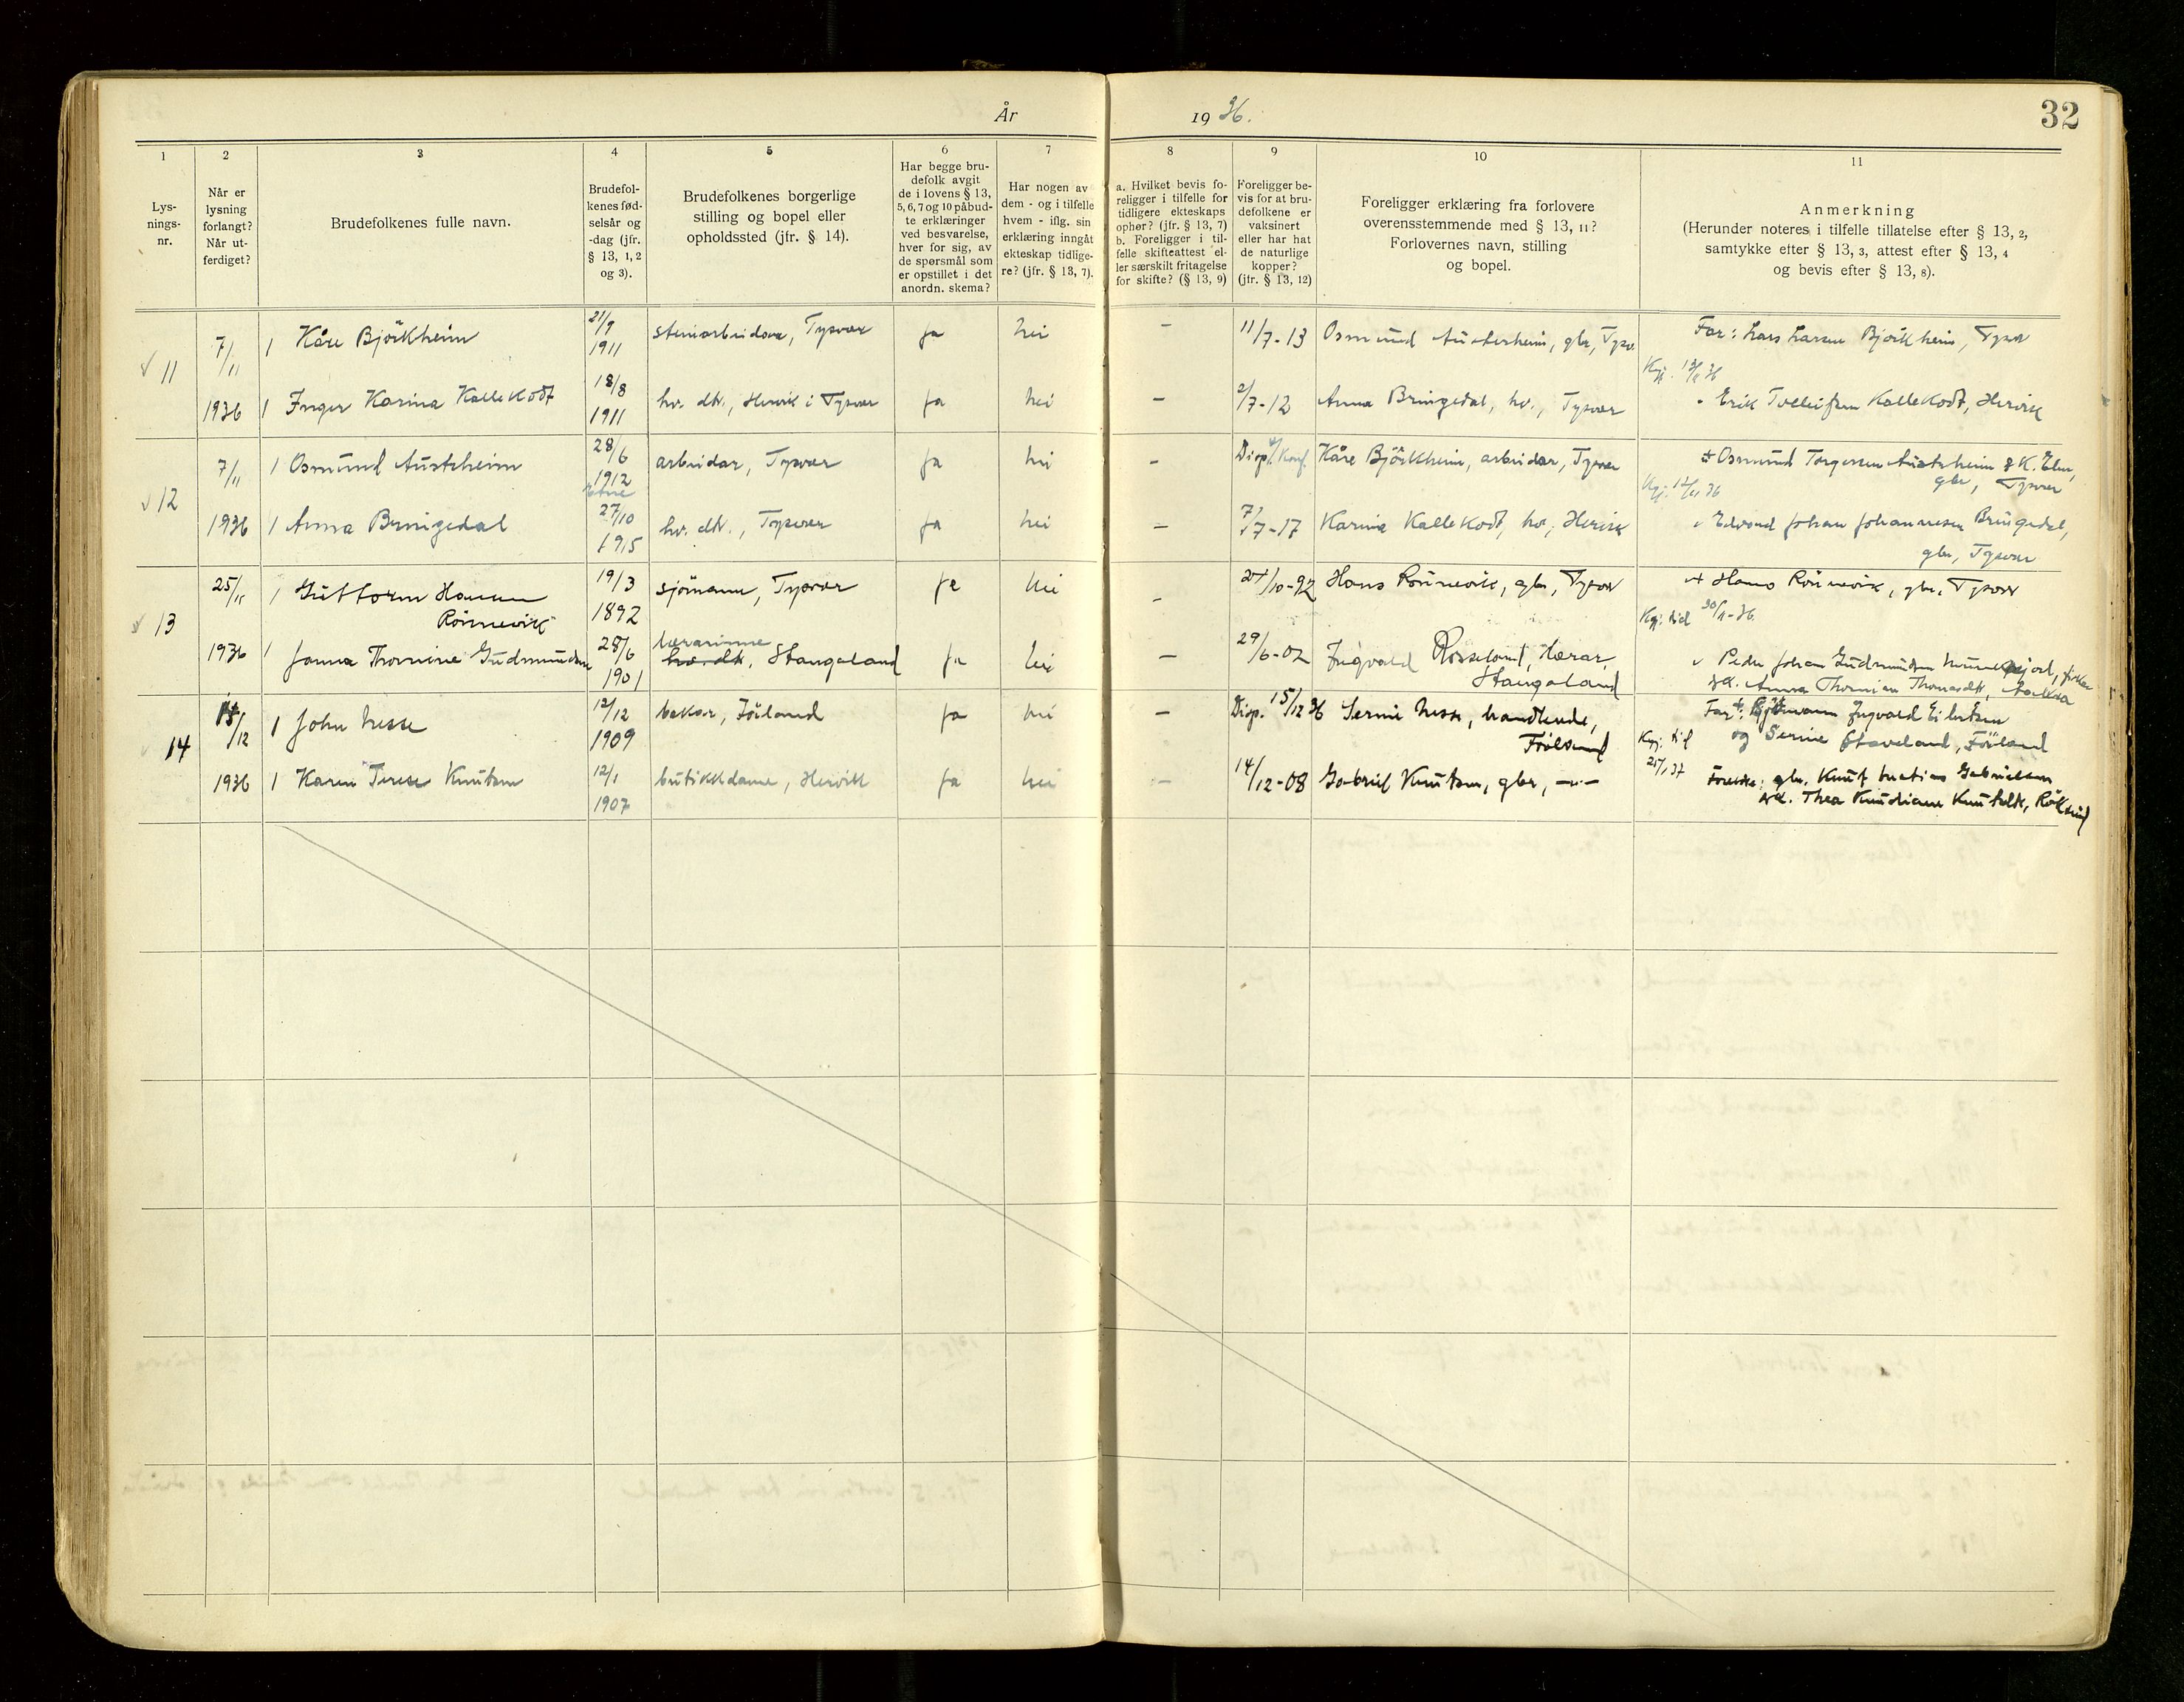 År 1936. 32
1 2 3 4 5 6 7 8 9 10 11
Lys-
nings-
nr.
Når er
lysning
forlangt?
Når ut-
ferdiget?
Brudefolkenes fulle navn.
Brudefol-
kenes fød-
selsår og
-dag (jfr.
§ 13, 1, 2
og 3).
Brudefolkenes borgerlige
stilling og bopel eller
opholdssted (jfr. § 14).
Har begge bru-
defolk avgit
de i lovens § 13,
5, 6, 7 og 10 påbud-
te erklæringer
ved besvarelse,
hver for sig, av
de spørsmål som
er opstillet i det
anordn. skema?
Har nogen av
dem - og i tilfelle
hvem - iflg. sin
erklæring inngåt
ekteskap tidlige-
re? (jfr. § 13, 7).
a. Hvilket bevis fo-
religger i tilfelle for
tidligere ekteskaps
ophør? (jfr. § 13, 7)
b. Foreligger i til-
felle skifteattest el-
ler særskilt fritagelse
for skifte? (§ 13, 9)
Foreligger be-
vis for at bru-
defolkene er
vaksinert
eller har hat
de naturlige
kopper?
(jfr. § 13, 12)
Foreligger erklæring fra forlovere
overensstemmende med § 13, 11?
Forlovernes navn, stilling
og bopel.
Anmerkning
(Herunder noteres i tilfelle tillatelse efter § 13, 2,
samtykke efter § 13, 3, attest efter § 13, 4
og bevis efter § 13, 8).
11 7/11 1 Kåre Björkheim 21/9 1911 steinarbeidar, Tysvær ja nei - 11/7-13 Osmund Austerheim, gbr, Far: Lars Larsen Björkheim, Tysvær
1936 1 Inger Karina Kallekodt 18/8 1911 hv. dtr., Hervik i Tysvær ja nei - 2/7-12 Anna Bringedal, hv., Tysvær Erik Kallekodt, Hervik
12 7/11 1 Osmund Austrheim 28/6 1912 Etne arbeidar, Tysvær ja nei - Disp. Kåre Björkheim, arbeidar, Tysvær Osmund Torgersen Austrheim
gbr, Tysvær
1936 1 Anna Bringedal 27/10 1915 hv. dtr., Tysvær ja nei - 7/7-17 Karina Kallekodt, hv., Hervik Edvard Johan Johannesen Bringedal,
gbr, Tysvær
13 25/11 1 Guttorm Hansen
Rönnevik 19/3 1892 sjömann, Tysvær ja nei - Hans Rönnevik, gbr, Tysvær Hans Rönnevik, gbr, Tysvær
30/11-36
1936 1 Janna Thomine Gudmundsen 28/6 1901 lærarinne
hv. dtr., Stangeland ja nei - 29/6-02 Ingvald lærar,
Stangeland Peder Johan Gudmundsen
Anna
14 /12 1 John Nesse 12/12 1909 bakar, Förland ja nei - Disp. 15/12 36 Serine Nesse, handlende, Far: Ingvald Eilertsen
og Serine Staveland, Förland
1936 1 Karen Terese Knutsen 12/1 1907 butikkdame, Hervik ja nei - 14/12-08 Gabriel Knutsen, gbr, -"- Foreldre: gbr. Knut Gabrielsen
Thea Knudiane